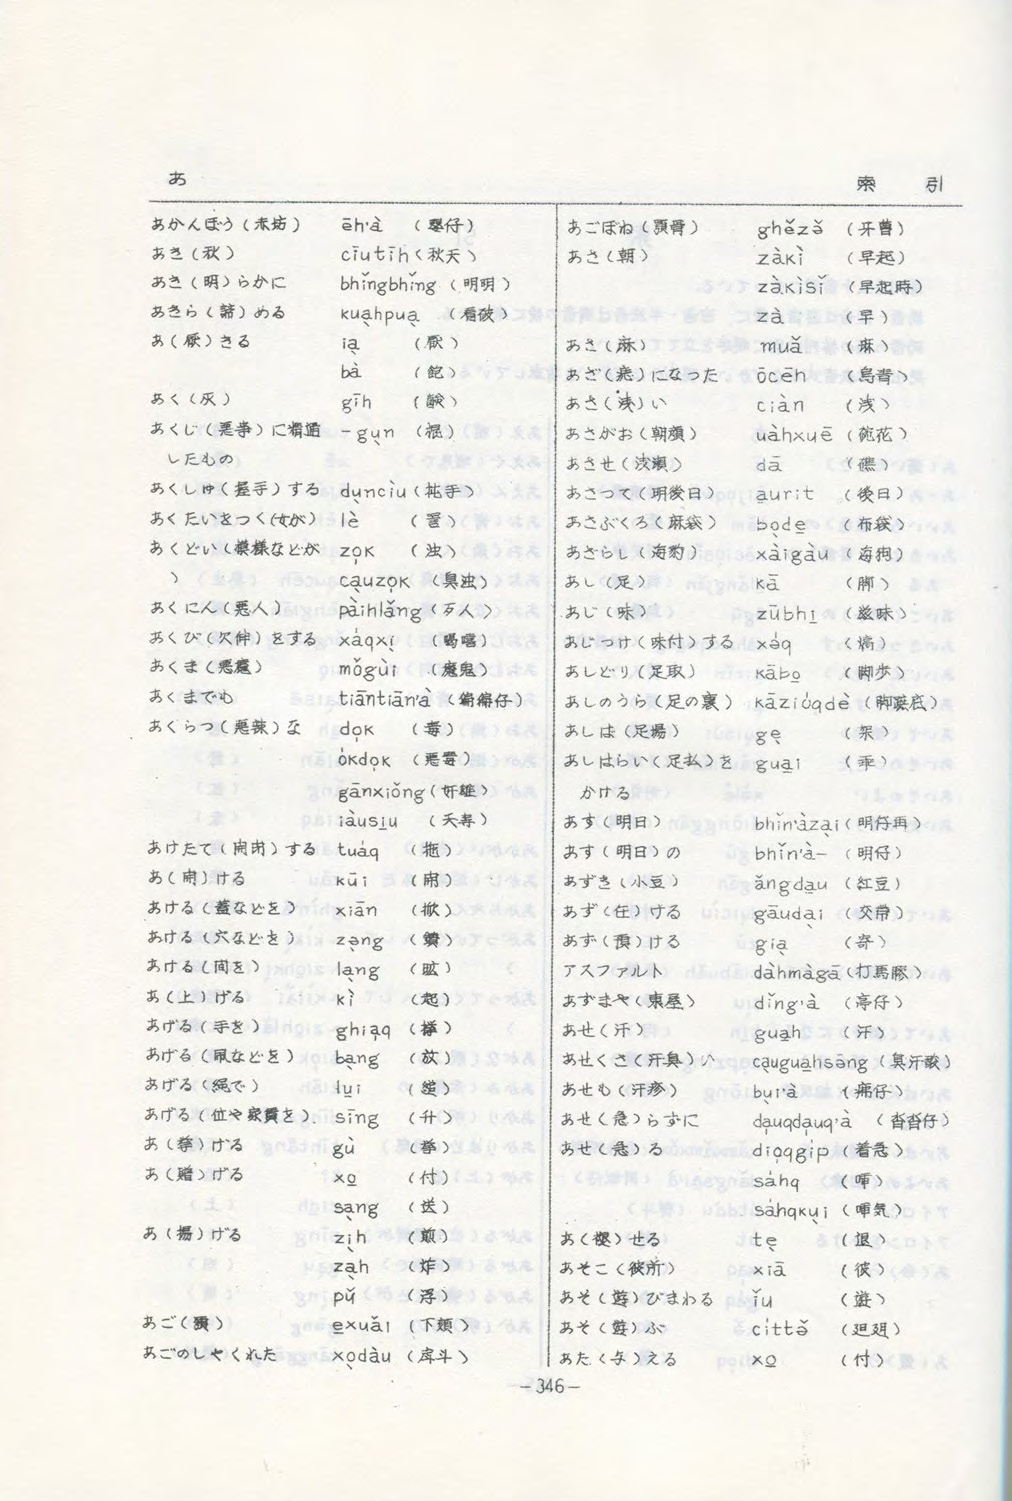 あ
索 引
あかんぼう(赤坊) ēh'à (嬰仔)
あき(秋) cīutīh(秋天)
あき(明)らかに bhǐngbhǐng (明明)
あきら(諦)める kuạhpuạ (看破)
あ(厭)きる iạ (厭)
bà (飽)
あく(灰) gīh
あくじ(悪事)に精通 -gụn (棍)
したもの
あくしゅ(握手)する dụncìu(扯手)
あくたいをつく(女が) lè (詈)
あくどい(模様などが zọk (浊)
) cạuzọk (臭浊)
あくにん(悪人) pàihlǎng(歹人)
あくび(欠伸)をする xáqxị (喝嚏)
あくま(悪魔) mǒgùi (魔鬼)
あくまでも tiāntiān'à
あくらつ(悪辣)な dọk (毒)
ókdọk (悪毒)
gānxiǒng(奸雄)
iàusịu (夭寿)
あけたて(開閉)する tuáq (拖)
あ(開)ける kūi (開)
あける(蓋などを) xiān (掀)
あける(穴などを) zạng (鑽)
あける(間を) lạng
あ(上)げる kì (起)
あげる(手を) ghiạq
あげる(凧などを) bạng (放)
あげる(縄で) lụi (縋)
あげる(位や家賃を) sīng (升)
あ(挙)げる gù (挙)
あ(贈)げる xọ (付)
sạng (送)
あ(揚)げる zịh (煎)
zạh (炸)
pǔ (浮)
あご(顎) ẹxuǎi (下頦)
あごのしゃくれた xọdàu (戽斗)
あごぼね(顎骨) ghězǎ (牙曹)
あさ(朝) zàkì (早起)
zàkìsǐ (早起時)
zà (早)
あさ(麻) muǎ (麻)
あざ(痣)になった ōcēh (烏青)
あさ(浅)い ciàn (浅)
あさがお(朝顔) uàhxuē (碗花)
あさせ(浅瀬) dā (礁)
あさって(明後日) ạurit (後日)
あさぶくろ(麻袋) bọdẹ (布袋)
あざらし(海豹) xàigàu (海狗)
あし(足) kā (脚)
あじ(味) zūbhị (滋味)
あじつけ(味付)する xáq
あしどり(足取) kābọ (脚歩)
あしのうら(足の裏) kāzióqdè
あしば(足場) gẹ (架)
あしばらい(足払)を guại
かける
あす(明日) bhǐn'àzại(明仔再)
あす(明日)の bhǐn'à- (明仔)
あずき(小豆) ǎngdạu (紅豆)
あず(任)ける gāudại (交帯)
あず(預)ける gịạ (寄)
アスファルト dàhmàgā(打馬膠)
あずまや(東屋) dǐng'à (亭仔)
あせ(汗) guạh (汗)
あせくさ(汗臭)い cạuguạhsāng (臭汗酸)
あせも(汗疹) bụi'à (痱仔)
あせ(急)らずに dạuqdạuq'à (沓沓仔)
あせ(急)る diọqgíp (着急)
sáhq
sáhqkụi
あ(褪)せる tẹ (退)
あそこ(彼所) xiā (彼)
あそ(遊)びまわる ǐu (遊)
あそ(遊)ぶ cíttǎ
あた(与)える xọ (付)
-346-